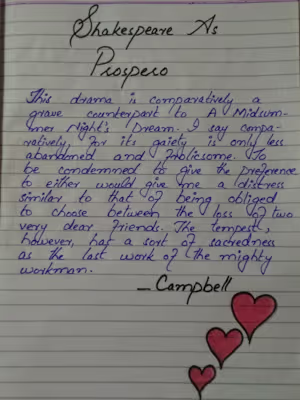 Shakespeare As
Prospero
This drama is comparatively a
grave counterpart to A Midsum-
mer Night's Dream. I say compa-
ratively, for its gaiety is only less
abandoned and frolicsome. To
be condemned to give the preference
to either would give me a distress
similar to that of being obliged
to choose between the loss of two
very dear friends. The tempest,
however, has a sort of sacredness
as the last work of the mighty
workman.
— Campbell